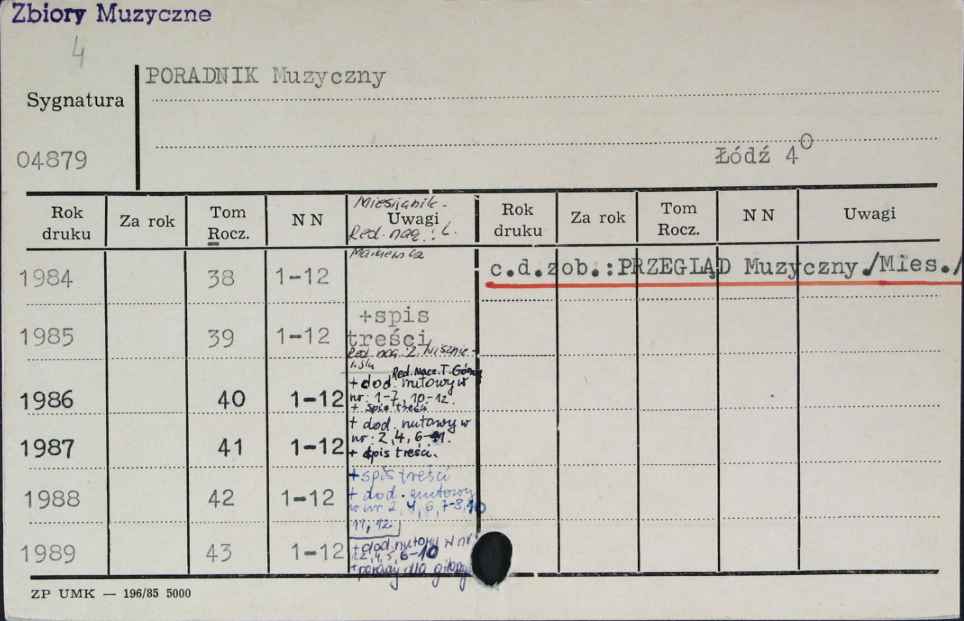 Zbiory Muzyczne
4
PORADNIK Muzyczny
Sygnatura
04879
Łódź 4⁰
Rok druku Za rok Tom Rocz. N N Uwagi Rok druku Za rok Tom Rocz. N N Uwagi
Miesięcznik.
Red. nacz.: L.
1984 38 1-12 c.d.zob.:PRZEGLĄD Muzyczny./Mies./
1985 39 1-12 +spis
treści
Red. nacz. Z.
Red. Nacz. T.
1986 40 1-12 + dod. nutowy w
nr. 1-7, 10-12.
+ spis treści
1987 41 1-12 + dod. nutowy w
nr. 2, 4, 6-11.
+ spis treści.
1988 42 1-12 + spis treści
+ dod. nutowy
w nr 2, 4, 6, 7-8, 10
11, 12
1989 43 1-12 + dod. nutowy w nr
6-10
ZP UMK — 196/85 5000